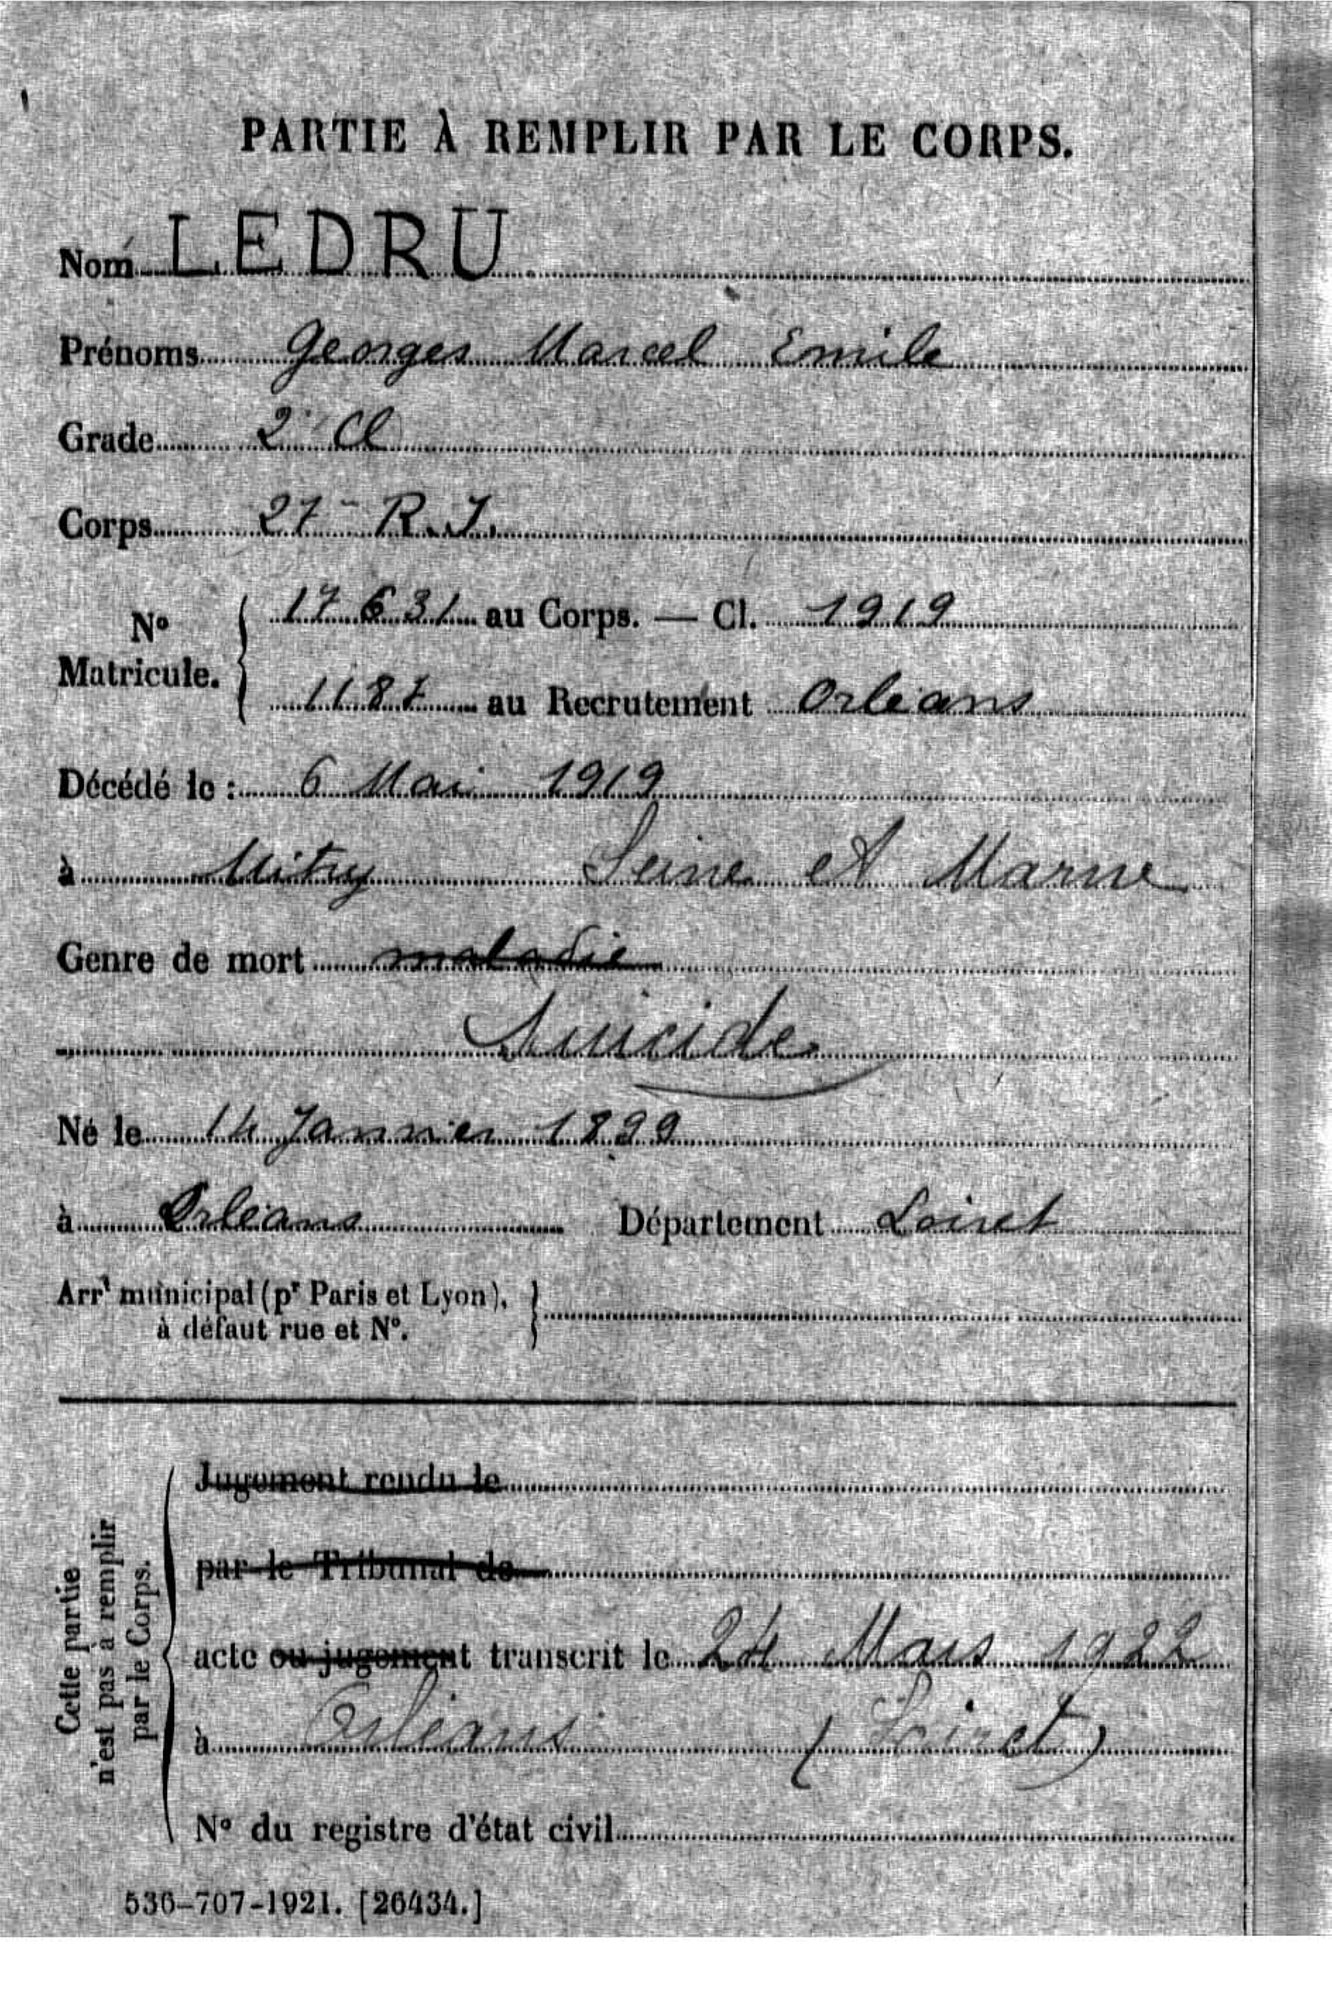 PARTIE À REMPLIR PAR LE CORPS.
Nom LEDRU
Prénoms Georges Marcel Emile
Grade 2e Cl
Corps 27e R.I.
No Matricule. 17631 au Corps. — Cl. 1919
1187 au Recrutement Orléans
Décédé le : 6 Mai 1919
à Mitry Seine et Marne
Genre de mort maladie
Suicide
Né le 14 Janvier 1899
à Orléans Département Loiret
Arrt municipal (pr Paris et Lyon),
à défaut rue et No.
Cette partie
n'est pas à remplir
par le Corps.
Jugement rendu le
par le Tribunal de
acte ou jugement transcrit le 24 Mars 1922
à Orléans (Loiret)
No du registre d'état civil
536-707-1921. [26434.]